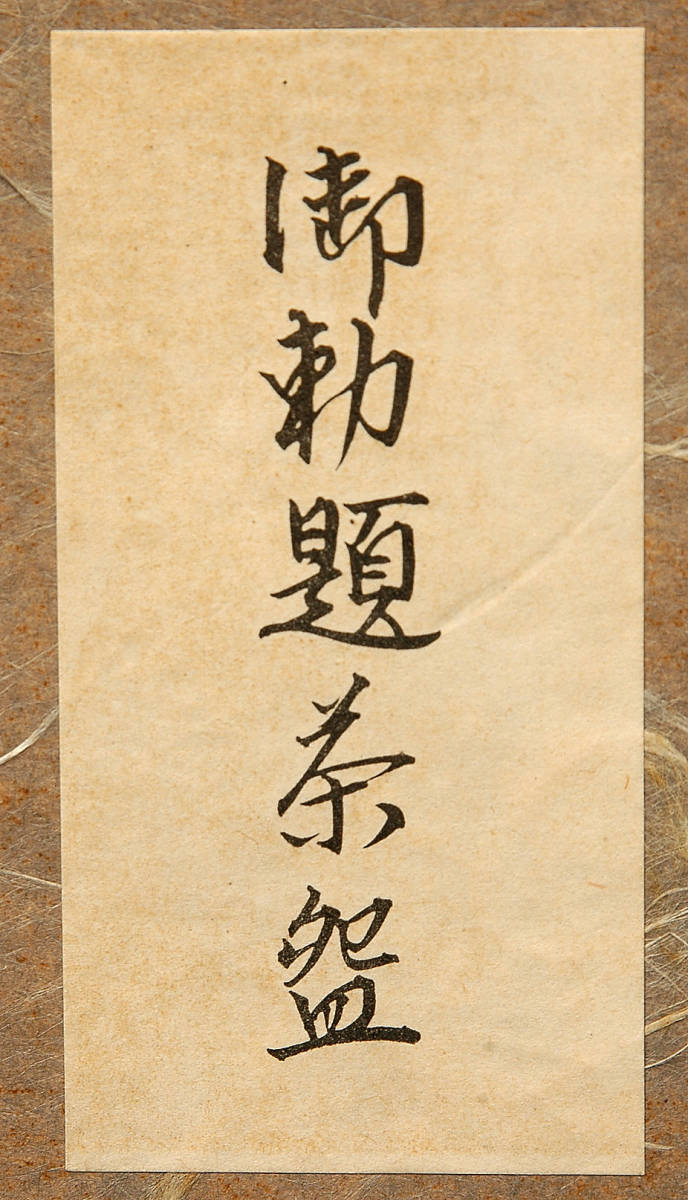 御勅題茶盌